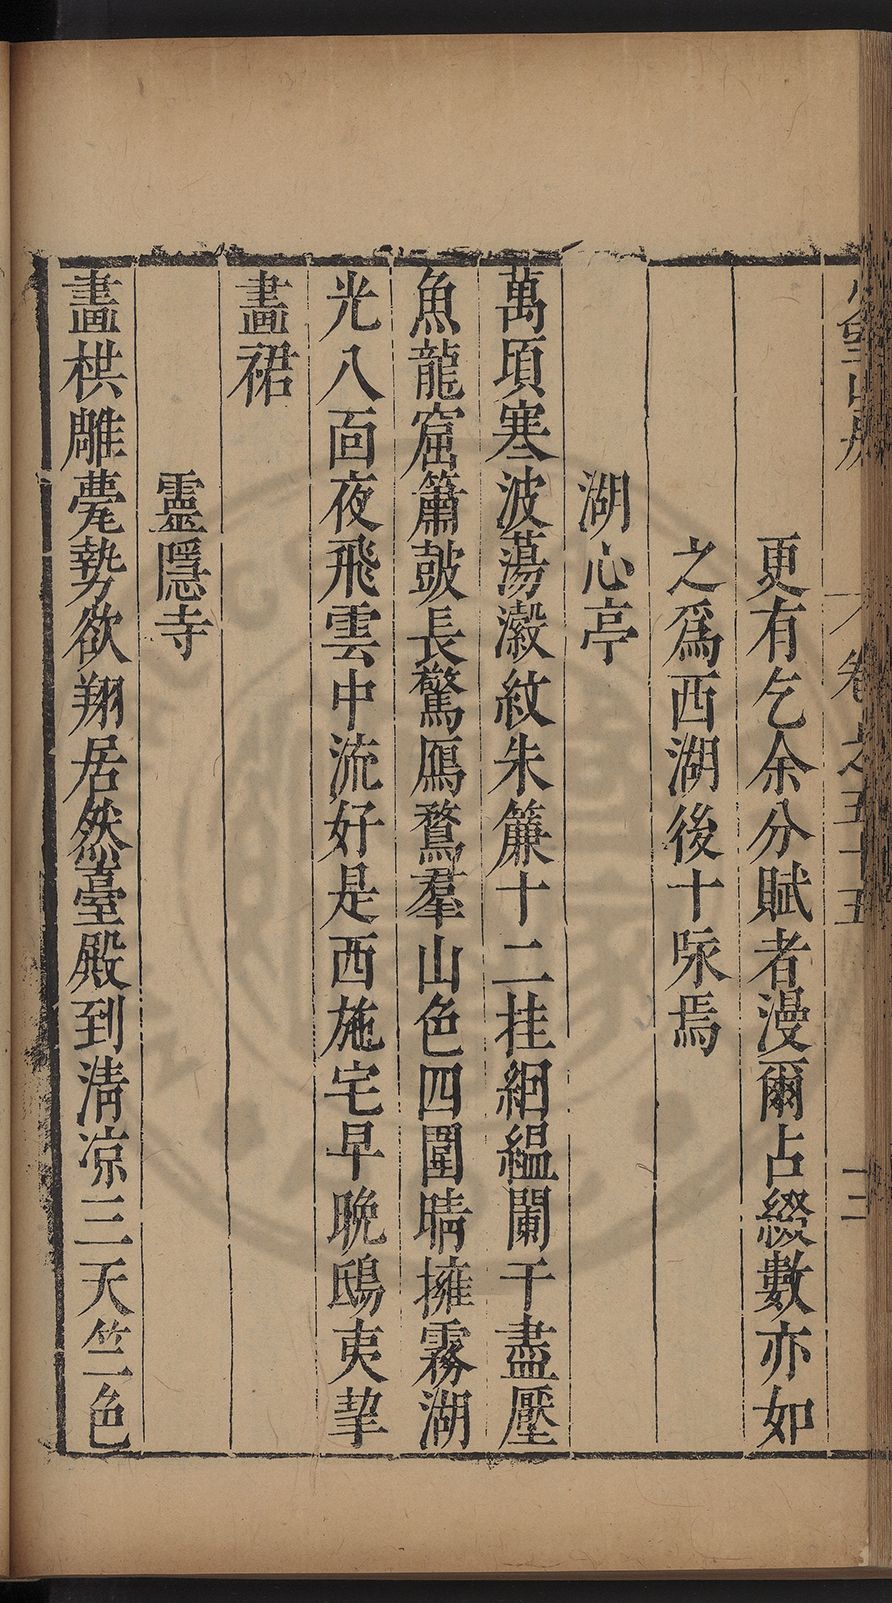 卷之五十五
更有乞余分賦者漫爾占綴數亦如
之爲西湖後十咏焉
湖心亭
萬頃寒波蕩瀫紋朱簾十二挂絪縕闌干盡壓
魚龍窟簫皷長驚鴈鶩羣山色四圍晴擁霧湖
光八面夜飛雲中流好是西施宅早晚鴟夷挈
畫裙
靈隱寺
畫栱雕甍勢欲翔居然臺殿到淸凉三天竺色